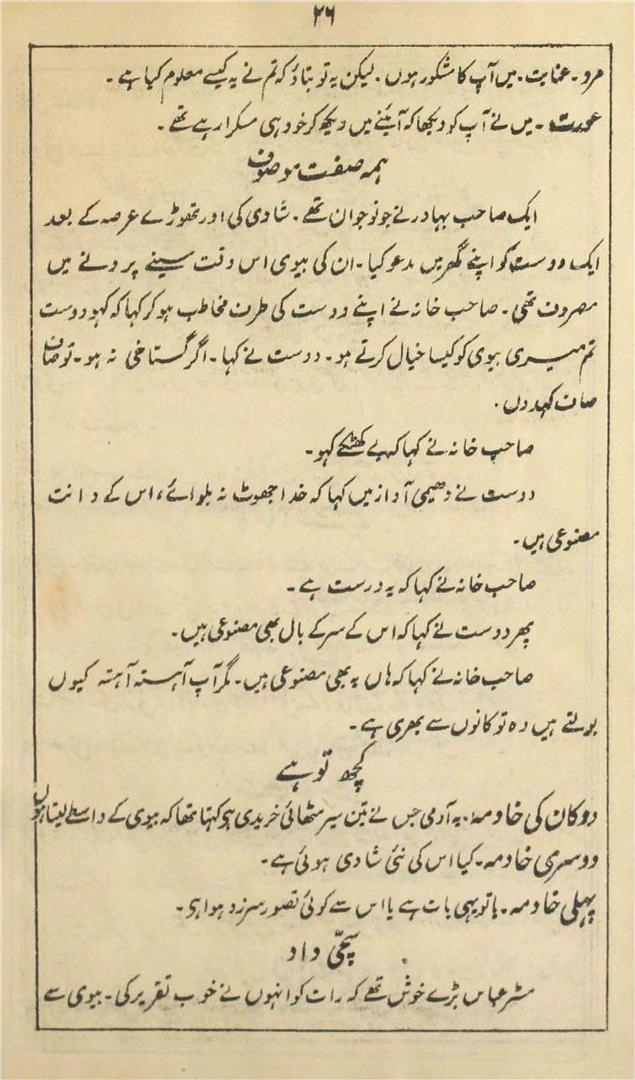 ۲۶
مرد۔ عنایت۔ میں آپ کا مشکور ہوں۔ لیکن یہ تو بتاؤ کہ تم نے یہ کیسے معلوم کیا ہے۔
عورت۔ میں نے آپ کو دیکھا کہ آئینے میں دیکھ کر خود ہی مسکرا رہے تھے۔
ہمہ صفت موصوف
ایک صاحب بہادر نے جو نوجوان تھے۔ شادی کی اور تھوڑے عرصہ کے بعد
ایک دوست کو اپنے گھر میں مدعو کیا۔ ان کی بیوی اس وقت سینے پرونے میں
مصروف تھی۔ صاحب خانہ نے اپنے دوست کی طرف مخاطب ہو کر کہا کہ کہو دوست
تم میری بیوی کو کیسا خیال کرتے ہو۔ دوست نے کہا۔ اگر گستاخی نہ ہو۔ تو صاف
صاف کہدوں۔
صاحب خانہ نے کہا کہ بے کھٹکے کہو۔
دوست نے دھیمی آواز میں کہا کہ خدا جھوٹ نہ بلوائے، اس کے دانت
مصنوعی ہیں۔
صاحب خانہ نے کہا کہ یہ درست ہے۔
پھر دوست نے کہا کہ اس کے سر کے بال بھی مصنوعی ہیں۔
صاحب خانہ نے کہا کہ ہاں یہ بھی مصنوعی ہیں۔ مگر آپ آہستہ آہستہ کیوں
بولتے ہیں وہ تو کانوں سے بھری ہے۔
کچھ تو ہے
دوکان کی خادمہ۔ یہ آدمی جس نے تین سیر مٹھائی خریدی ہو کہتا تھا کہ بیوی کے واسطے لیتا ہوں
دوسری خادمہ۔ کیا اس کی نئی شادی ہوئی ہے۔
پہلی خادمہ۔ یا تو یہی بات ہے یا اس سے کوئی قصور سرزد ہوا ہو۔
سچی داد
مسٹر عباس بڑے خوش تھے کہ رات کو انہوں نے خوب تقریر کی۔ بیوی سے